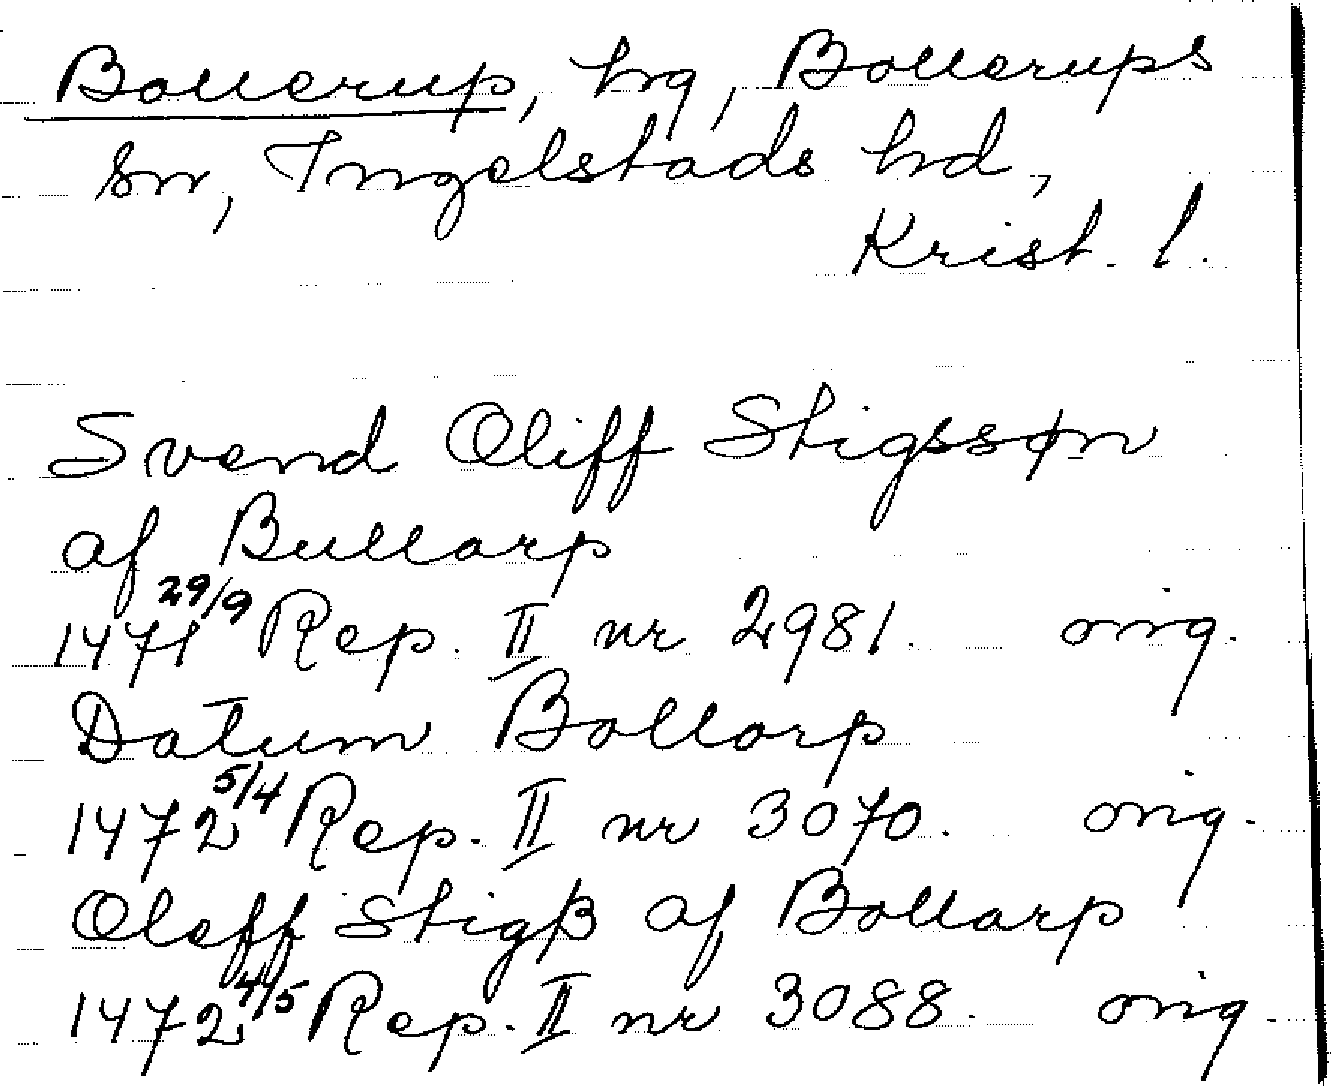 Bollerup, hg, Bollerups
sn, Ingelstads hd,
Krist. l.
Svend Oliff Stigssøn
af Bullarp
1471 29/9 Rep. II nr 2981. orig.
Datum Bollorp
1472 5/4 Rep. II nr 3070. orig.
Oleff Stigß af Bollarp
1472 4/5 Rep. II nr 3088. orig.